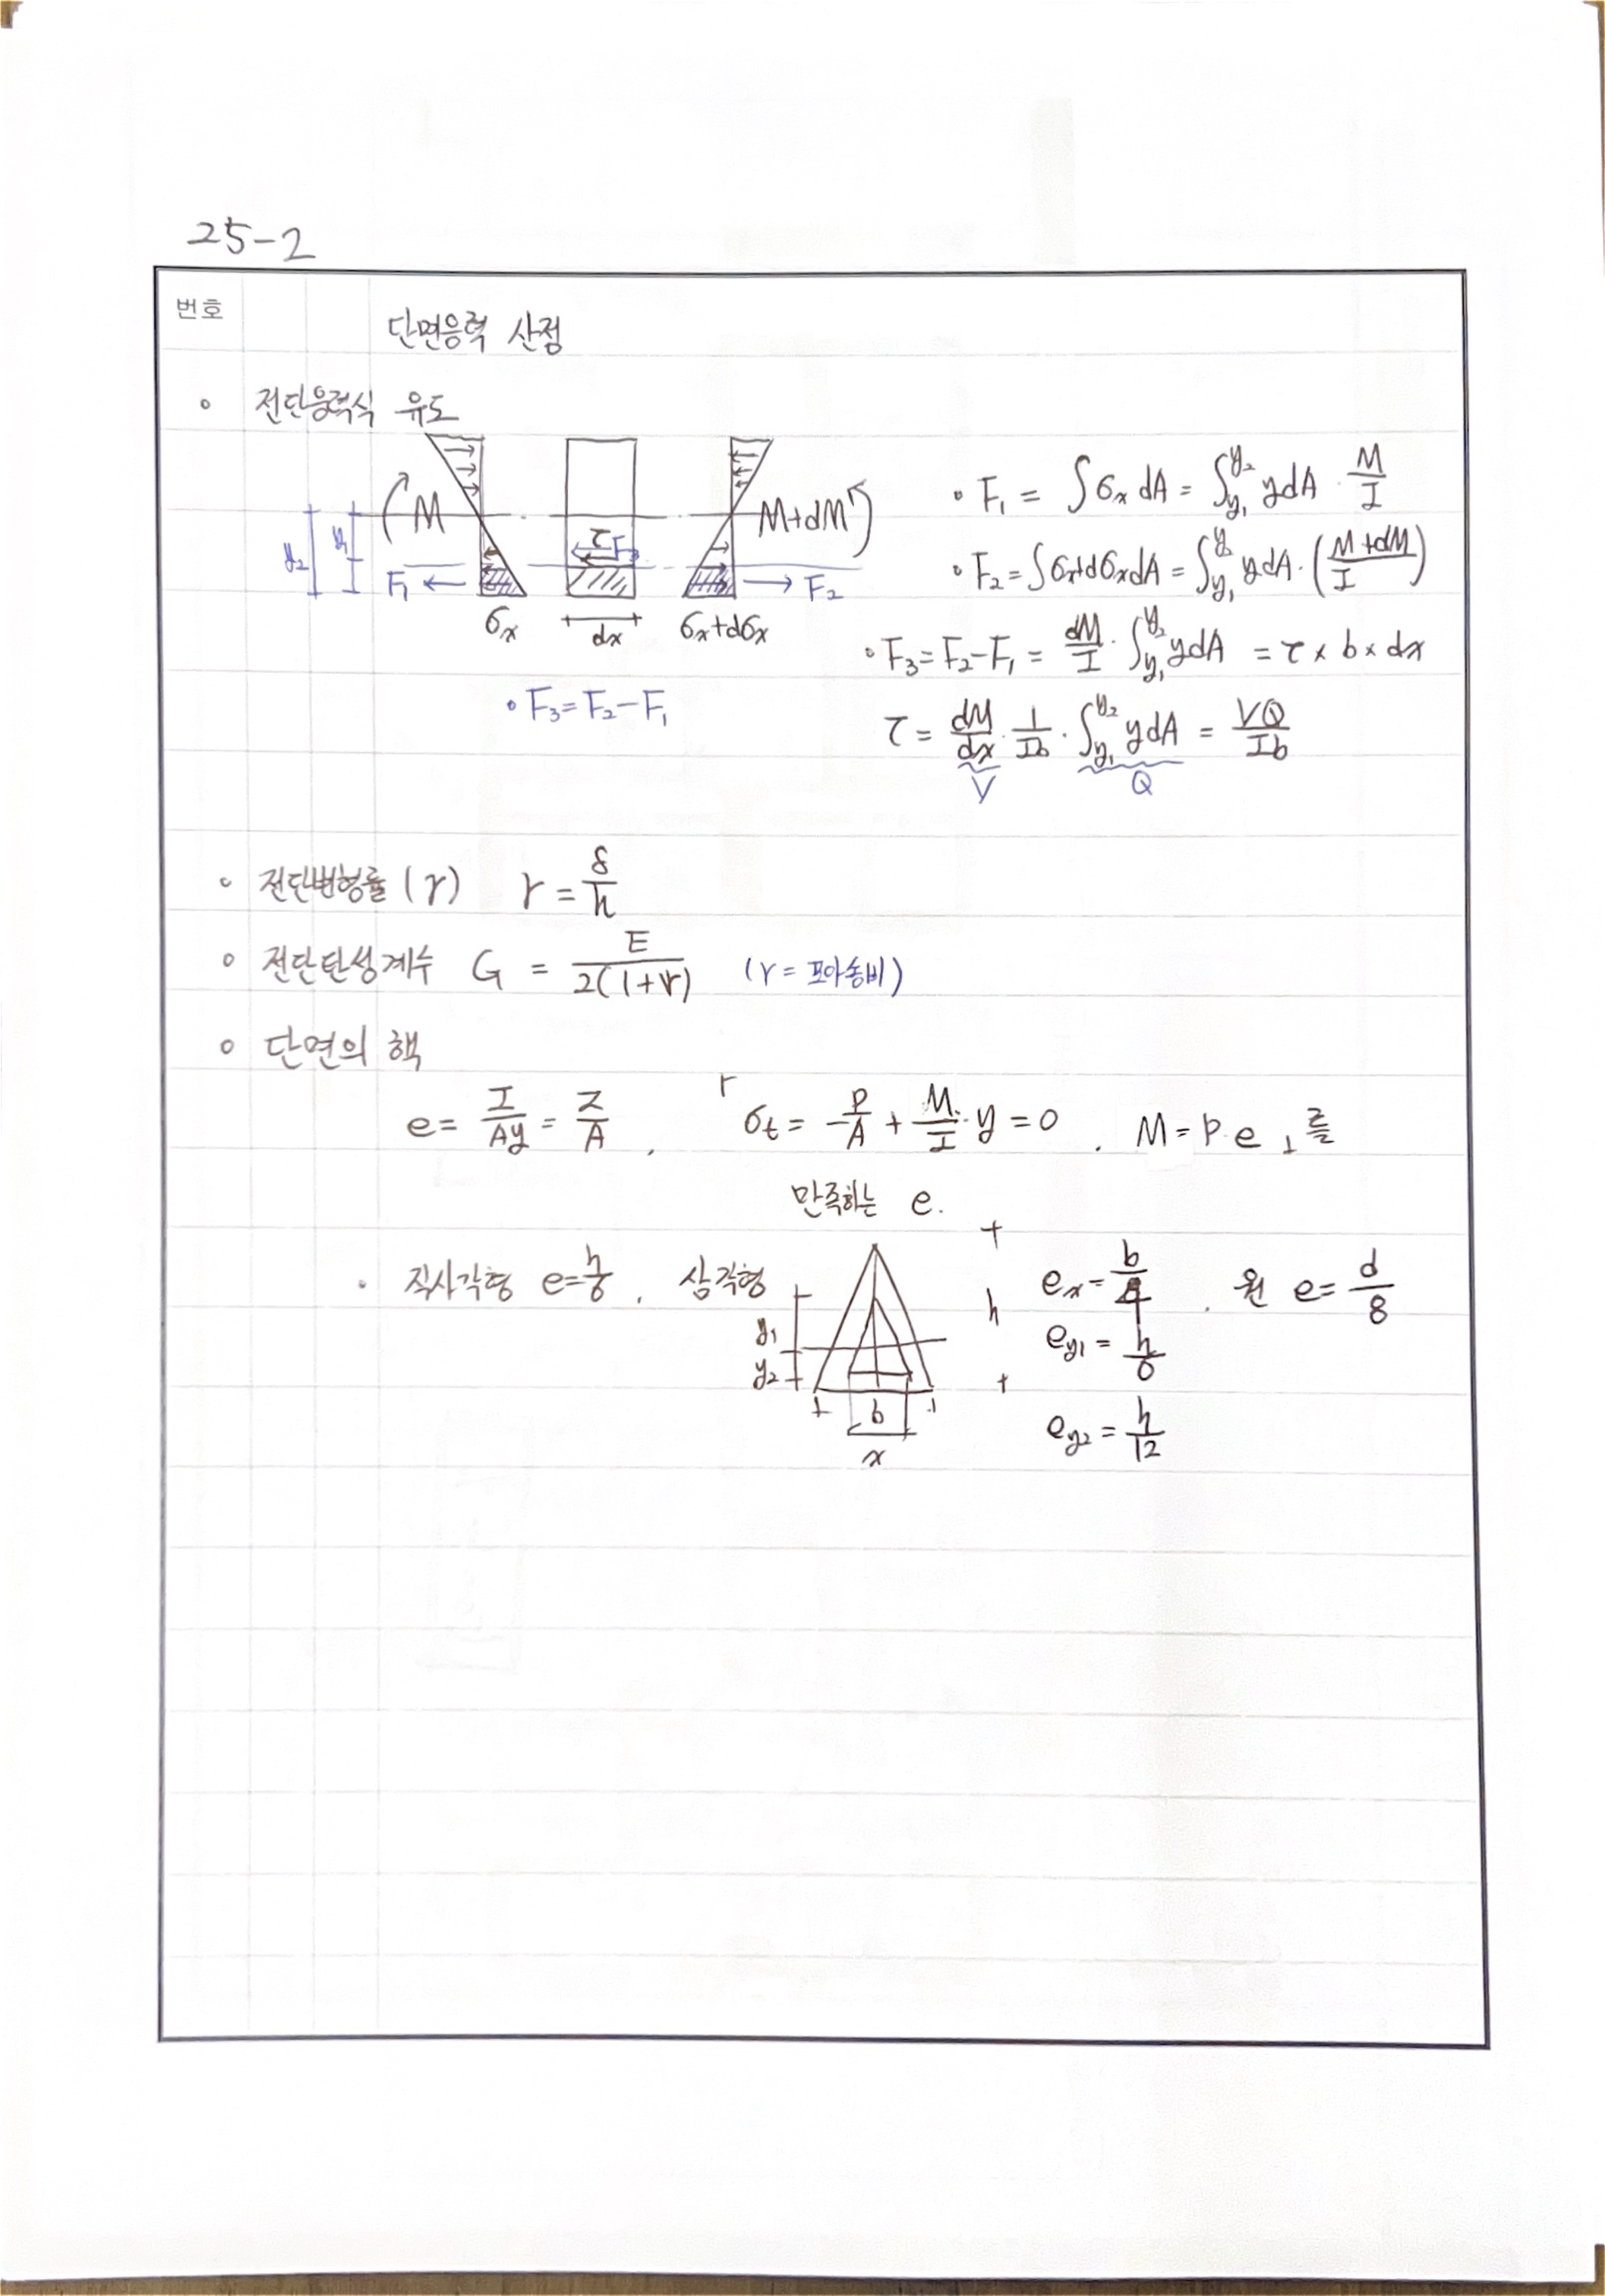 25-2
번호
단면응력 산정
◦ 전단응력식 유도
M
M+dM
y₂
y₁
τ
F₃
F₁
F₂
σx
dx
σx+dσx
• F₃=F₂-F₁
• F₁ = ∫σx dA = ∫_{y₁}^{y₂} ydA · M/I
• F₂ = ∫σx+dσx dA = ∫_{y₁}^{y₂} ydA · (M+dM/I)
• F₃=F₂-F₁ = dM/I · ∫_{y₁}^{y₂} ydA = τ × b × dx
τ = dM/dx · 1/Ib · ∫_{y₁}^{y₂} ydA = VQ/Ib
V
Q
◦ 전단변형률 (γ) γ = δ/h
◦ 전단탄성계수 G = E/2(1+ν) (ν = 포아송비)
◦ 단면의 핵
e = I/Ay = Z/A , 「 σt = -P/A + M/I · y = 0 , M = P·e 」를
만족하는 e.
• 직사각형 e=h/6 , 삼각형
y₁
y₂
b
x
h
ex = b/4
ey₁ = h/6
ey₂ = h/12
, 원 e = d/8